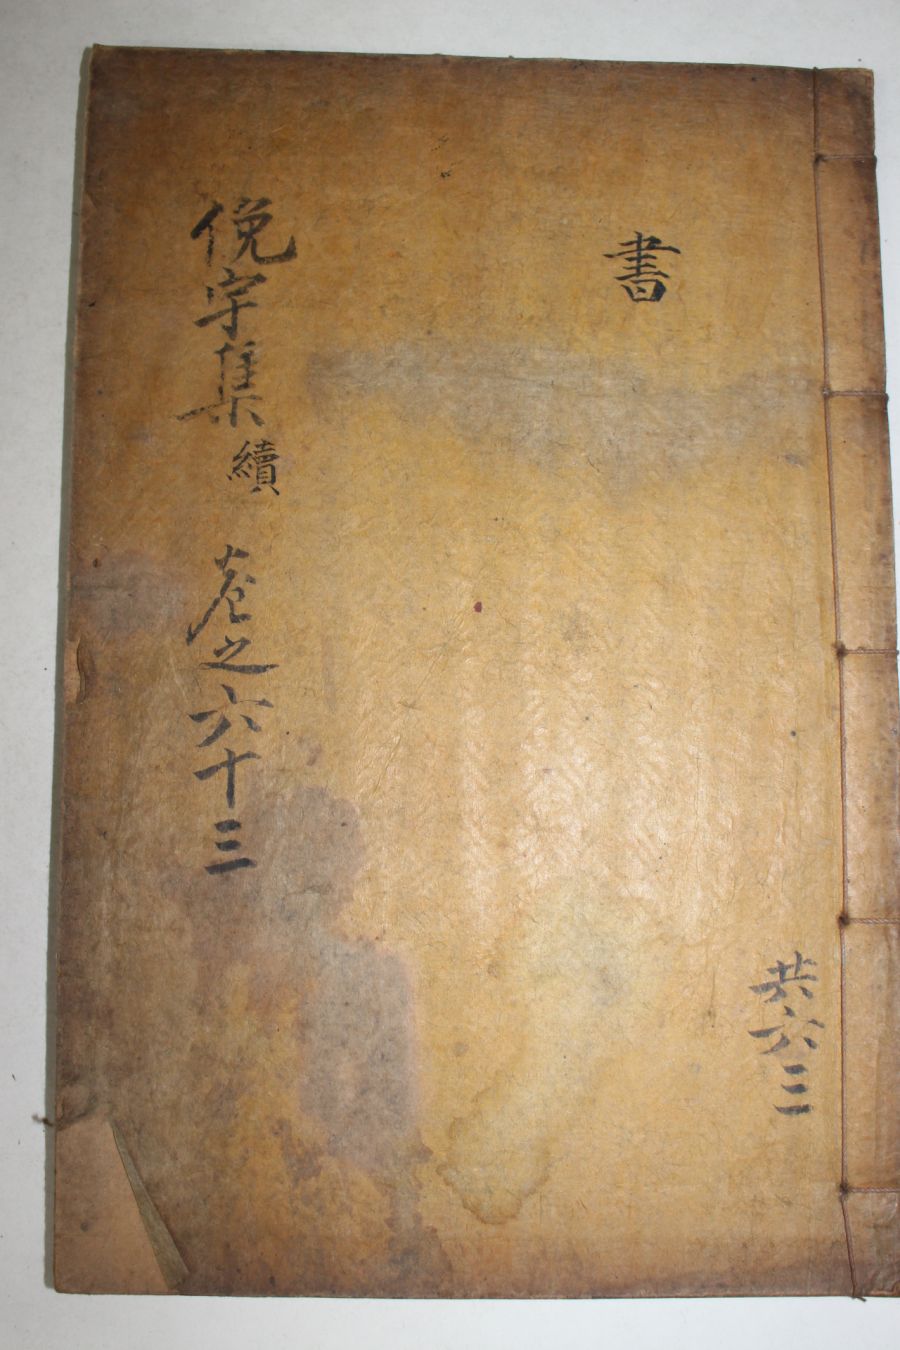 書
俛宇集 續 卷之六十三
共六三